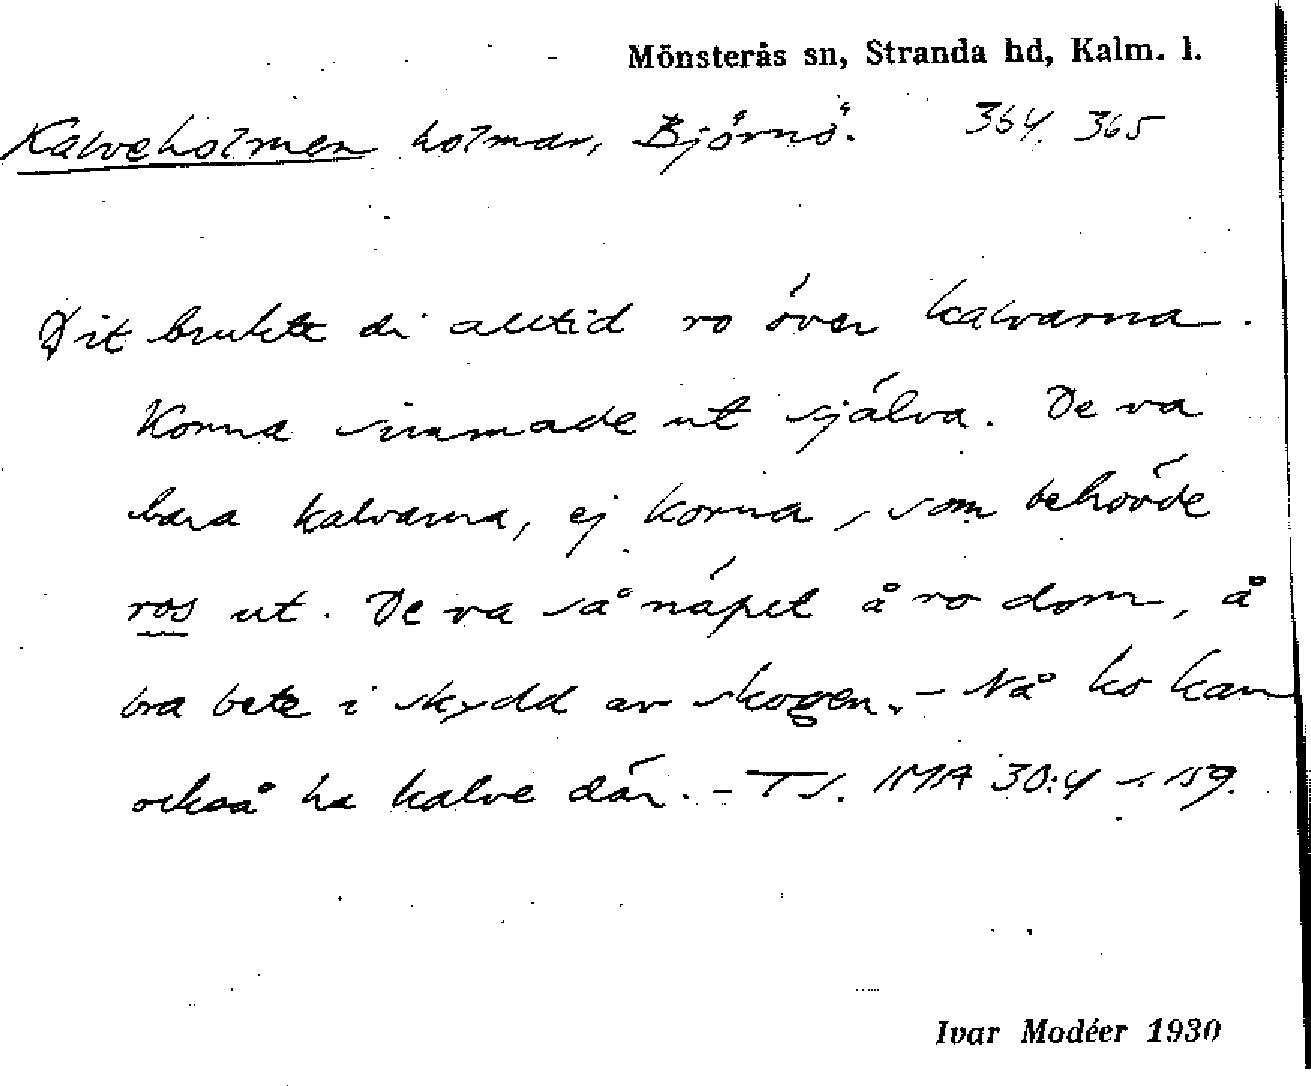 Mönsterås sn, Stranda hd, Kalm. l.
Kalveholmen holmar, Björnö. 364. 365
Dit brukte di alltid ro över kalvarna.
Korna simmade ut själva. De va
bara kalvarna, ej korna, som behövde
ros ut. De va så näpet å ro dom, å
bra bete i skydd av skogen. – Nå ko kan
också ha kalve där. – TS. IMA 30:4 s. 159.
Ivar Modéer 1930